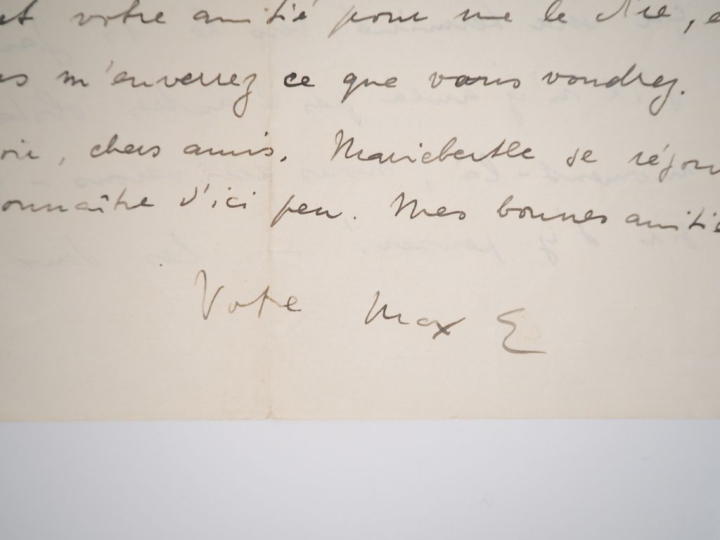 et votre amitié pour me le dire, e
us m'enverrez ce que vous voudrez.
oir, chers amis. Marieberthe se réjou
onnaître d'ici peu. Mes bonnes amitié
Vote Max E